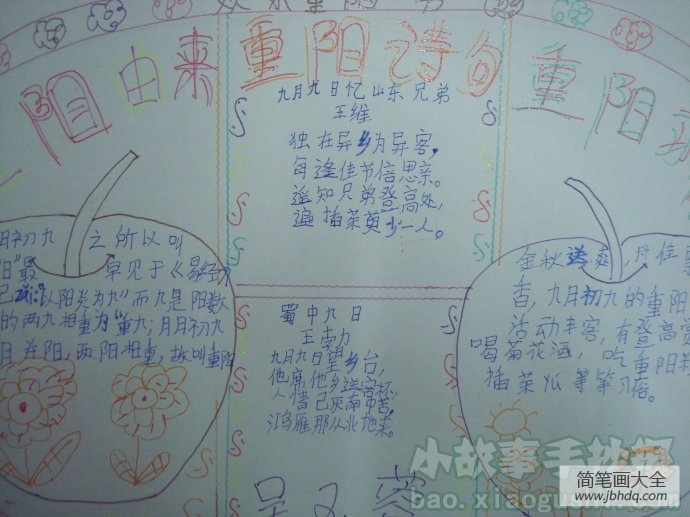 欢乐重阳节
阳由来
重阳诗句
重阳
九月九日忆山东兄弟
王维
独在异乡为异客，
每逢佳节倍思亲。
遥知兄弟登高处，
遍插茱萸少一人。
蜀中九日
王勃
九月九日望乡台，
他席他乡送客杯。
人情已厌南中苦，
鸿雁那从北地来。
阳初九 之所以叫
阳"最 早见于《易经》
以阳爻为九"而九是阳数
的两九相重为"重九；月日初九
月并阳，两阳相重，故叫重阳
金秋送爽，丹佳
香，九月初九的重阳
活动丰客，有登高
喝菊花酒，吃重阳
插茱萸等等习俗。
小故事手抄报
bao.xiaogushi
简笔画大全
www.jbhdq.com